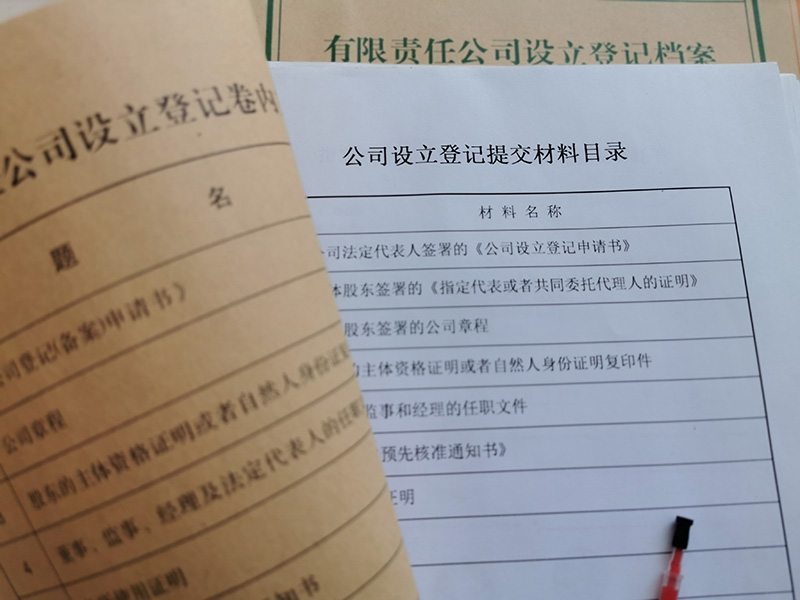 有限责任公司设立登记档案
公司设立登记卷内
题 名
公司登记(备案)申请书》
公司章程
股东的主体资格证明或者自然人身份证
4 董事、监事、经理及法定代表人的任职
使用证明
知书
公司设立登记提交材料目录
材料名称
司法定代表人签署的《公司设立登记申请书》
体股东签署的《指定代表或者共同委托代理人的证明》
股东签署的公司章程
的主体资格证明或者自然人身份证明复印件
监事和经理的任职文件
预先核准通知书》
证明